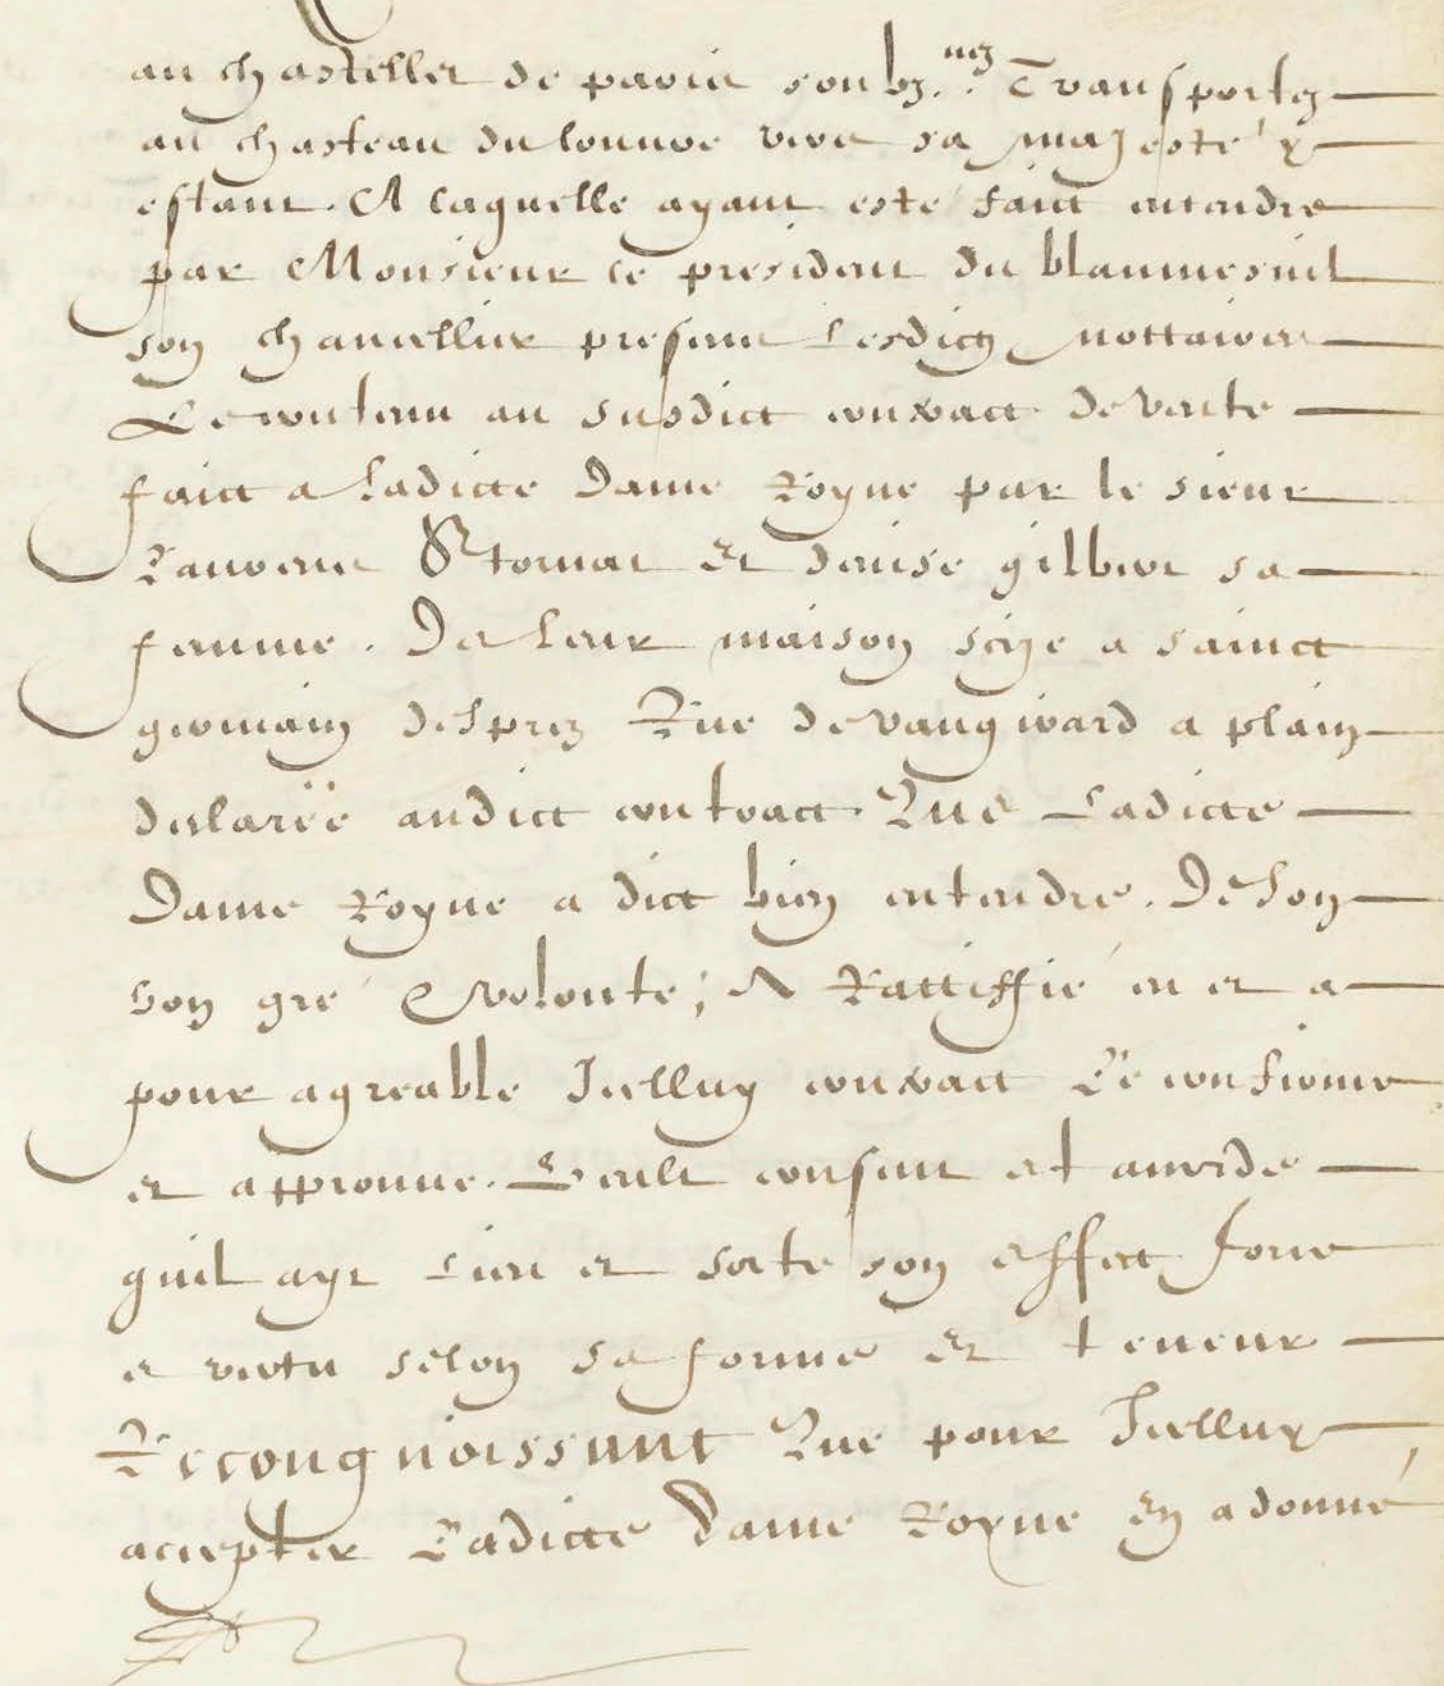 au chastellet de paris soubz.nez Transportez
au chasteau du louvre vers sa majesté y
estant. A laquelle ayant esté faict entendre
par Monsieur le president du blancmesnil
son chancellier present lesdictz nottaires
Le contenu au susdict contract de vente
faict a ladicte Dame Royne par le sieur
Laurent et denise gilbert sa
femme. De leur maison scize a sainct
germain desprez Rue de vaugirard a plain
declarëe audict contract. Que Ladicte
Dame Royne a dict bien entendre. De son
bon gré & volonte; A Rattiffié en et a
pour agreable Icelluy contract Le confirme
et approuve. Veult consent et accorde
quil ayt Lieu et sorte son effect force
et vertu selon sa forme et teneur
Recongnoissant Que pour Icelluy
accepter Ladicte Dame Royne En a donné